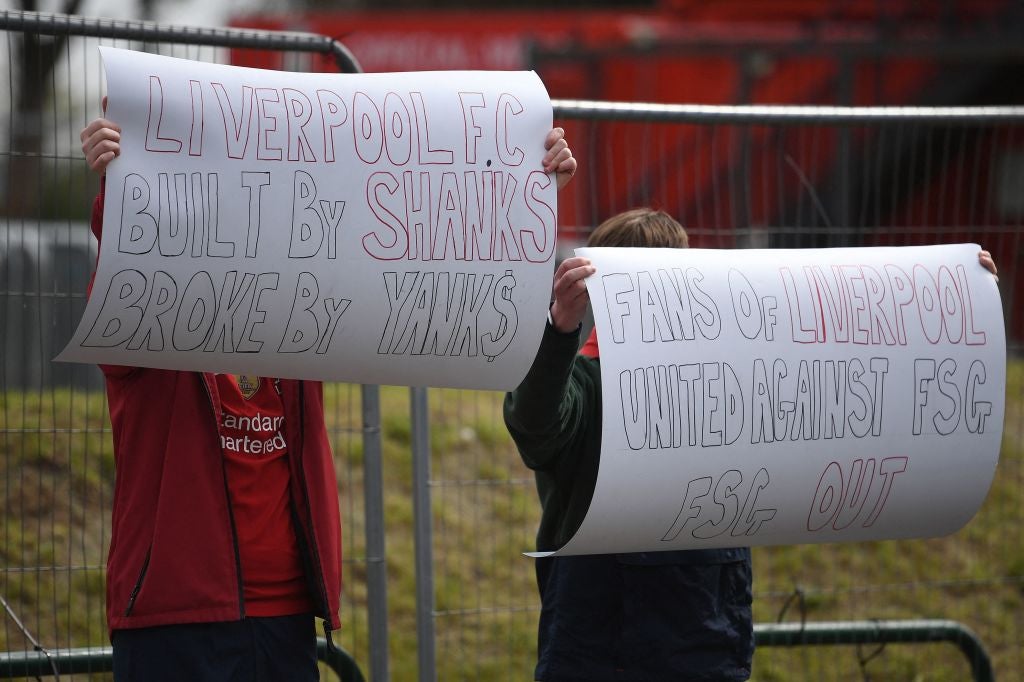 LIVERPOOL F.C
BUILT BY SHANKS
BROKE BY YANK$
FANS OF LIVERPOOL
UNITED AGAINST FSG
FSG OUT
tandard
artered